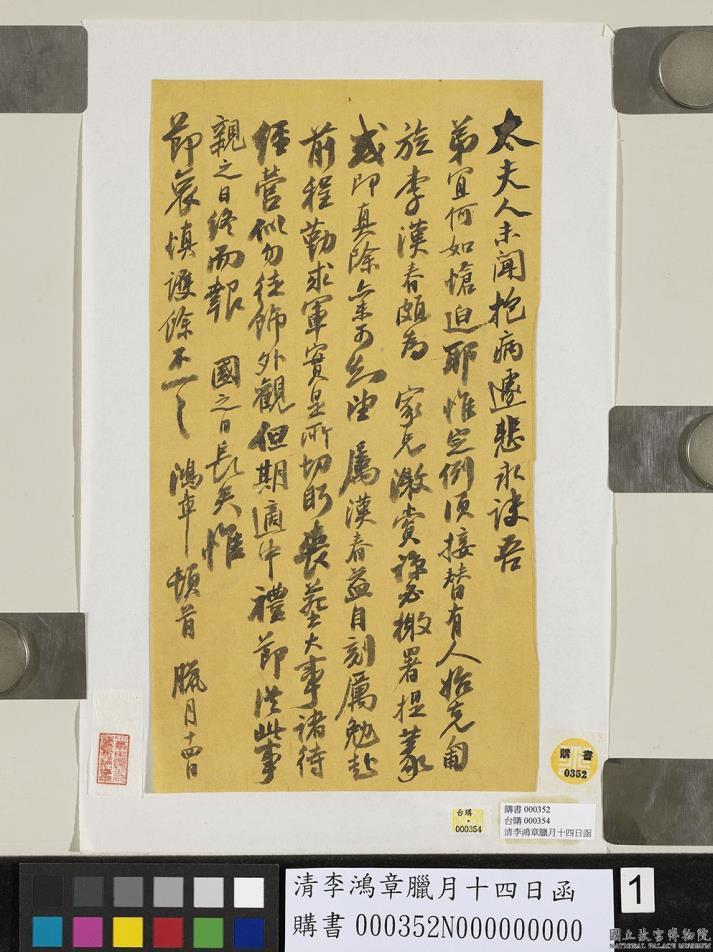 太夫人未聞抱病遽悲永訣吾
弟宜何如愴迫耶惟定例須接替有人始克匍
旋李漢春頗為 家兄激賞諒必檄署提篆
或即真除
屬漢春益自刻厲勉赴
前程勤求軍實是所切盼襄葬大事諸待
經營似勿徒飾外觀但期適中禮節從此事
親之日終而報 國之日長矣惟
節哀慎護餘不一一 鴻章頓首 臘月十四日
購書
0352
台購
000354
購書 000352
台購 000354
清李鴻章臘月十四日函
清李鴻章臘月十四日函
購書 000352N000000000
1
國立故宮博物院
NATIONAL PALACE MUSEUM